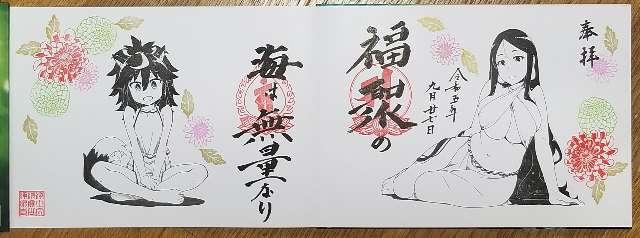 奉拝
令和五年
九月廿七日
福聚の
海は無量なり